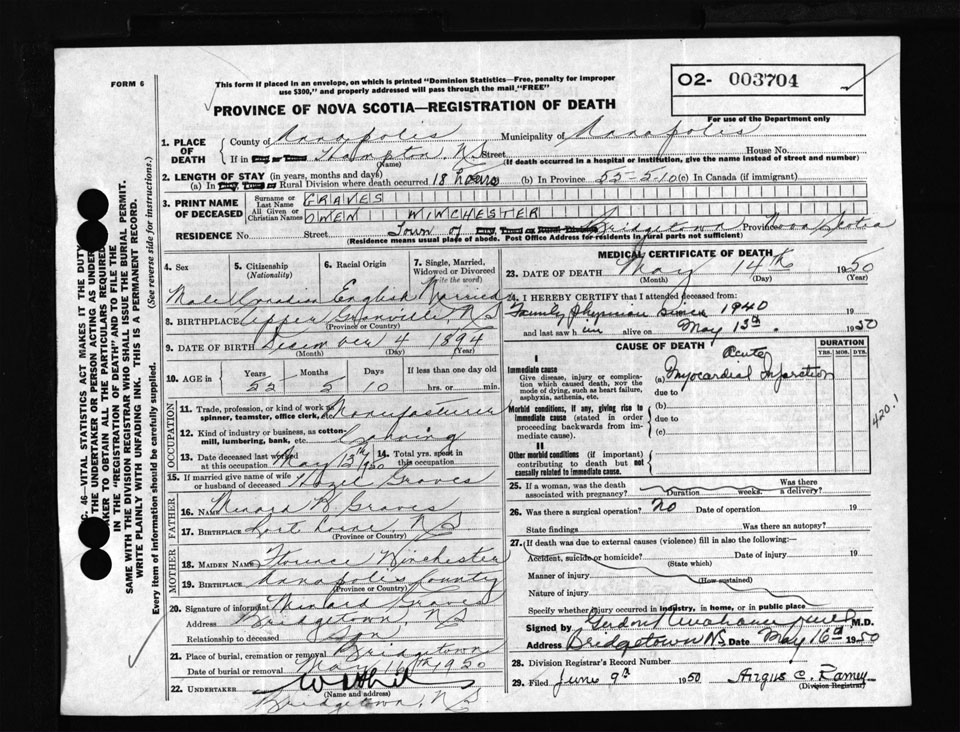 FORM 6
This form if placed in an envelope, on which is printed "Dominion Statistics—Free, penalty for improper
use $300," and properly addressed will pass through the mail "FREE"
O2- 003704
For use of the Department only
PROVINCE OF NOVA SCOTIA—REGISTRATION OF DEATH
1. PLACE OF DEATH County of Annapolis Municipality of Annapolis
If in City, Town or Hampton, N.S. Street House No.
(Name) (If death occurred in a hospital or institution, give the name instead of street and number)
2. LENGTH OF STAY (in years, months and days)
(a) In City, Town or Rural Division where death occurred 18 hours (b) In Province 55-5-10 (c) In Canada (if immigrant)
3. PRINT NAME OF DECEASED Surname or Last Name GRAVES
All Given or Christian Names OWEN WINCHESTER
RESIDENCE No. Street Town of City, Town or Rural Division Bridgetown Province Nova Scotia
(Residence means usual place of abode. Post Office Address for residents in rural parts not sufficient)
4. Sex 5. Citizenship (Nationality) 6. Racial Origin 7. Single, Married, Widowed or Divorced (Write the word)
Male Canadian English Married
8. BIRTHPLACE Upper Granville, N.S.
(Province or Country)
9. DATE OF BIRTH December 4 1894
(Month) (Day) (Year)
10. AGE in Years Months Days If less than one day old
55 5 10 hrs. or min.
OCCUPATION
11. Trade, profession, or kind of work as spinner, teamster, office clerk, etc. Manufacturer
12. Kind of industry or business, as cotton-mill, lumbering, bank, etc.
13. Date deceased last worked at this occupation May 12th 1950 14. Total yrs. spent in this occupation
15. If married give name of wife or husband of deceased Hazel Graves
FATHER
16. Name Minard R Graves
17. Birthplace Port Lorne, N.S
(Province or Country)
MOTHER
18. MAIDEN NAME Florence Winchester
19. BIRTHPLACE Annapolis County
(Province or Country)
20. Signature of informant Minard Graves
Address Bridgetown, N.S
Relationship to deceased Son
21. Place of burial, cremation or removal Bridgetown
Date of burial or removal May 16th 1950
22. UNDERTAKER
(Name and address)
Bridgetown, N.S
MEDICAL CERTIFICATE OF DEATH
23. DATE OF DEATH May 14th 1950
(Month) (Day) (Year)
24. I HEREBY CERTIFY that I attended deceased from:
Family Physician Since 1940 19
and last saw him alive on May 13th. 1950
CAUSE OF DEATH DURATION
YRS. MOS. DYS.
I
Immediate cause
Give disease, injury or complication which caused death, not the mode of dying, such as heart failure, asphyxia, asthenia, etc.
(a) Acute Myocardial Infarction
due to
Morbid conditions, if any, giving rise to immediate cause (stated in order proceeding backwards from immediate cause).
(b)
due to
(c)
420.1
II
Other morbid conditions (if important) contributing to death but not causally related to immediate cause.
25. If a woman, was the death associated with pregnancy? Duration weeks. Was there a delivery?
26. Was there a surgical operation? No Date of operation 19
State findings Was there an autopsy?
27. (If death was due to external causes (violence) fill in also the following:—
Accident, suicide or homicide? Date of injury 19
(State which)
Manner of injury
(How sustained)
Nature of injury
Specify whether injury occurred in industry, in home, or in public place
Signed by M.D.
Address Bridgetown N.S. Date May 16th 1950
28. Division Registrar's Record Number
29. Filed June 9th 1950 Angus C. Ramey
(Division Registrar)
THE UNDERTAKER OR PERSON ACTING AS
IN THE "REGISTRATION OF DEATH" AND TO FILE THE
SAME WITH THE DIVISION REGISTRAR WHO SHALL ISSUE THE BURIAL PERMIT.
WRITE PLAINLY WITH UNFADING INK. THIS IS A PERMANENT RECORD.
Every item of information should be carefully supplied. (See reverse side for instructions.)